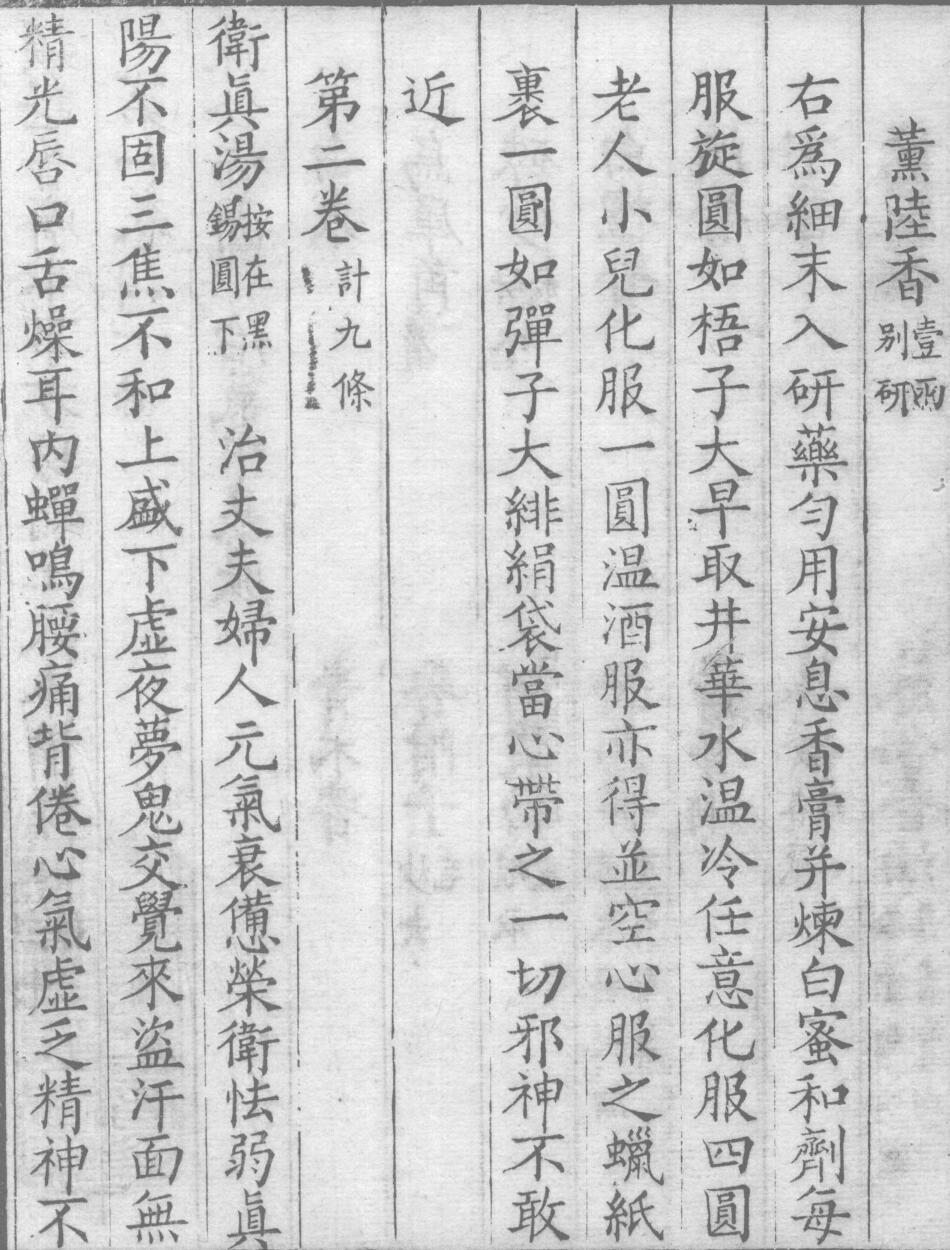 薰陸香壹兩别研
右爲細末入研藥勻用安息香膏并煉白蜜和劑每
服旋圓如梧子大早取井華水温冷任意化服四圓
老人小兒化服一圓温酒服亦得並空心服之蠟紙
裹一圓如彈子大緋絹袋當心帶之一切邪神不敢
近
第二卷計九條
衛眞湯按在黑錫圓下治丈夫婦人元氣衰憊榮衛怯弱眞
陽不固三焦不和上盛下虛夜夢鬼交覺來盜汗面無
精光唇口舌燥耳内蟬鳴腰痛背倦心氣虛乏精神不